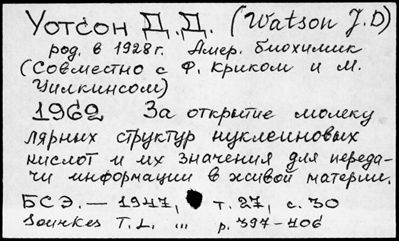 Уотсон Д.Д. (Watson J.D)
род. в 1928г. Амер. биохимик
(Совместно с Ф. Криком и М.
Уилкинсом)
1962 За открытие молеку
лярных структур нуклеиновых
кислот и их значения для переда-
чи информации в живой материи.
БСЭ. — 1977, т. 27, с. 30
T.L. ,,, p. 397-406